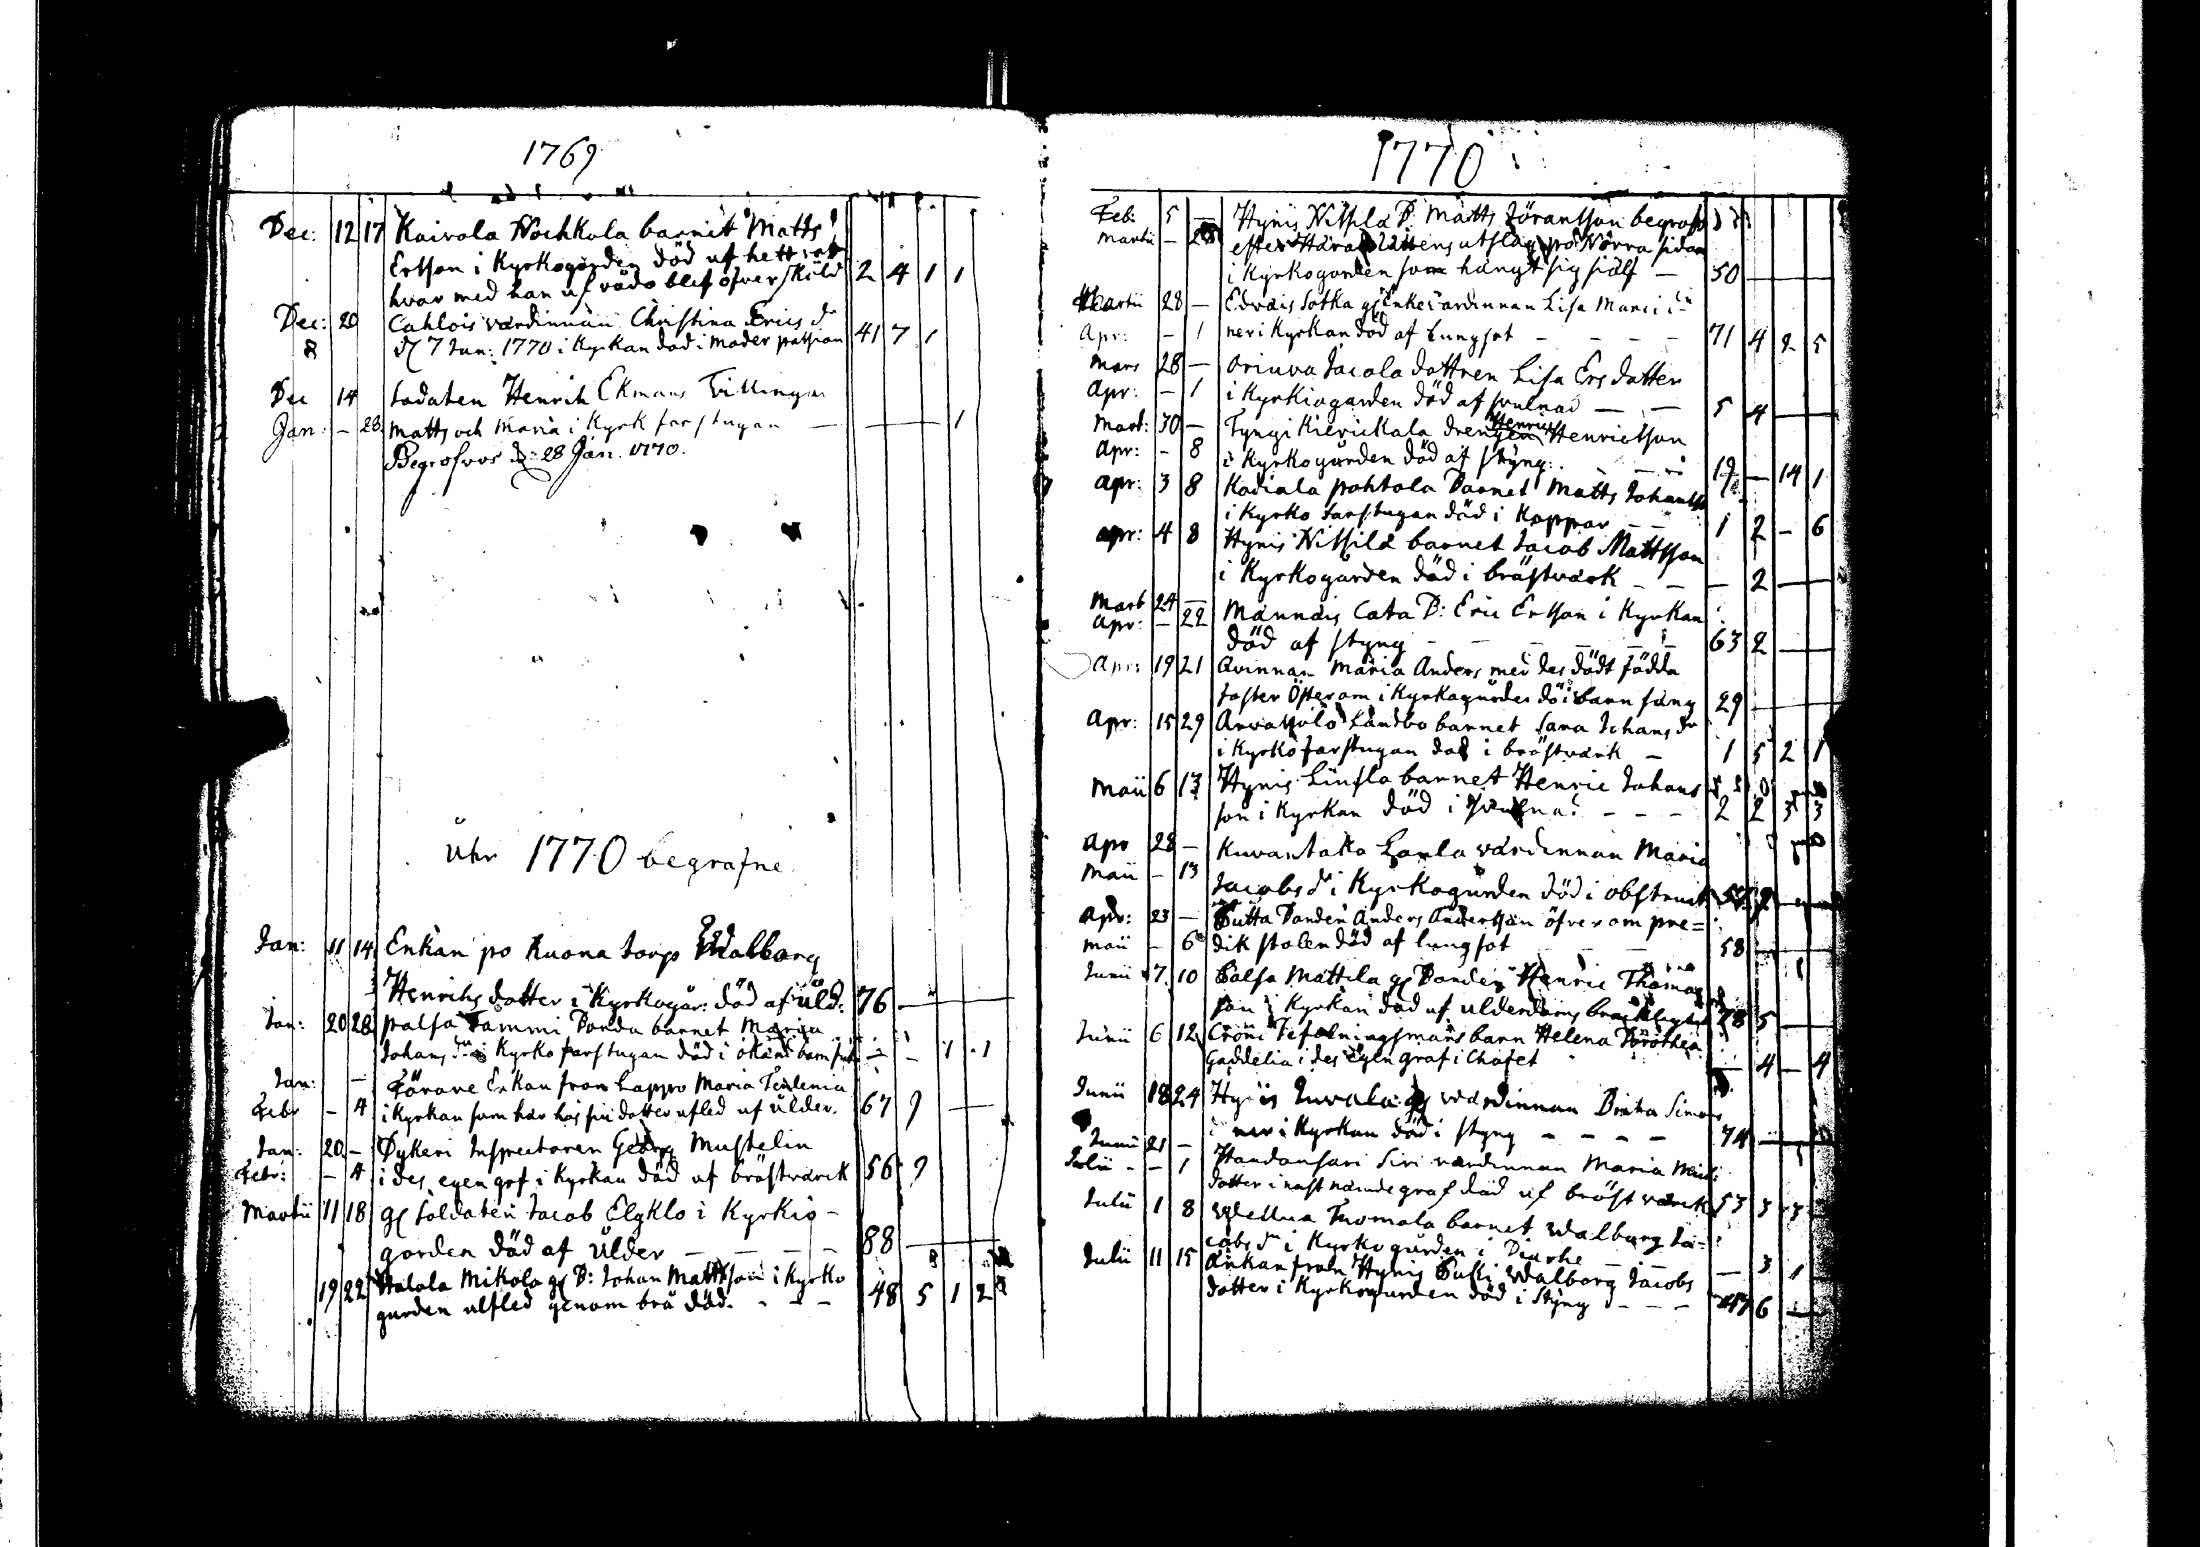 1769
Dec: 12 17 Kaivola Nochkola barnit Matts
Ersson i Kyrkogården död af hett
hvar med han af våda blef öfver sköld 2 4 1 1
Dec: 20 Cahlois värdinnan Christina Erics dr
d 7 Jan: 1770 i Kyrkan död i moder passion 41 7 1
Dec 14 Sodaten Henrik Ekmans Tvillingar
Jan: – 28 Matts och Maria i Kyrk farstugan — 1
Begrofvos d: 28 Jan. 1770.
Åhr 1770 begrafne
Jan: 11 14 Enkan po Kuona torp Walborg
Henrichs dotter i Kyrkogår: död af åld: 76 —
Jan: 20 28 palsa Tammi Bonda barnet Maria
Johans dr i Kyrko farstugan död i okänd barn — – 1 1
Jan: – Förare Enkan from Lappro Maria
Febr – 4 i Kyrkan som har hos sin dotter afled af ålder. 67 9 —
Jan: 20 – Dykeri Inspectoren Georg Mustelin
Febr: – 4 i des egen graf i Kyrkan död af bröstvärck 56 9
Martii 11 18 gl Soldaten Jacob Elgklo i Kyrkio-
gorden död af ålder – – – – 88 —
19 22 Halola Mikola gl B: Johan Mattsson i Kyrko
gården afled genom brå död. - - - 48 5 1 2
1770
Feb: 5 – Hynis Nissilä B. Matts Jöransson begrofs
Martii – efter Härads Rättens utslag på Norra sidan
i Kyrkogården som hängt sig sjelf — 50 —
Martii 28 – Edvais Sotka gl Enkevärdinnan Lisa Marci
Apr: – 1 ner i Kyrkan död af Lungsot – – – – 71 4 2 5
Mars 28 – Oriuva Jacola dottren Lisa Ers dotter
Apr: – 1 i Kyrkiogarden död af svulnad — — 5 4 —
Mart: 30 – Tyngi Kierickala drengen Henric Henricsson
Apr: – 8 i Kyrkogården död af styng. 19 — 14 1
Apr: 3 8 Kadiala pohtola Barnet Matts Johansson
i Kyrko farstugan död i Koppar – – 1 2 – 6
Apr: 4 8 Hynis Nissilä barnet Jacob Mattsson
i Kyrkogården död i bröstvärk – – — 2 —
Mart 24 — Männäis Cata B: Eric Ersson i Kyrkan
Apr: – 22 död af styng – – – – – 63 2 —
Apr: 19 21 Qvinnan Maria Anders med des dödt födda
foster Öster om i Kyrkogården dö i barn säng 29 —
Apr: 15 29 Arvassalo Landbo barnet Sara Johans dr
i Kyrko farstugan död i bröstvärk – 1 5 2 1
Maii 6 13 Hynis Linsla barnet Henric Johans
son i Kyrkan död i - - - 2 2 3 3
Apr 28 – Kuvastaka Laula värdinnan Maria
Maii – 13 Jacobs dr i Kyrkogården död i obstruct
Apr: 23 – Sutta Bonden Anders Andersson öfver om pre=
Maii – 6 dik stolen död af lungsot 58 —
Junii 7 10 Salsa Mattila gl Bonden Henric Thomas
son i Kyrkan död af ålderdoms bräcklighet 78 5 —
Junii 6 12 Crono Befalningsmans barn Helena Dorothea
Gaddelia i des egen graf i Choret — 4 – 4
Junii 18 24 Hynis Juvala gl värdinnan Brita Simons
ner i Kyrkan död i styng – – – – 74 —
Junii 21 – Handansari Siri värdinnan Maria
Julii – – 1 dotter i näst nämde graf död af bröst värck 53 3 3
Julii 1 8 Wellua Tuomola barnet Walborg Ja=
cobs dr i Kyrkogården i — 3 1
Julii 11 15 Änkan från Hynis Suki Walborg Jacobs
dotter i Kyrkogården död i Styng - - - 47 6 —